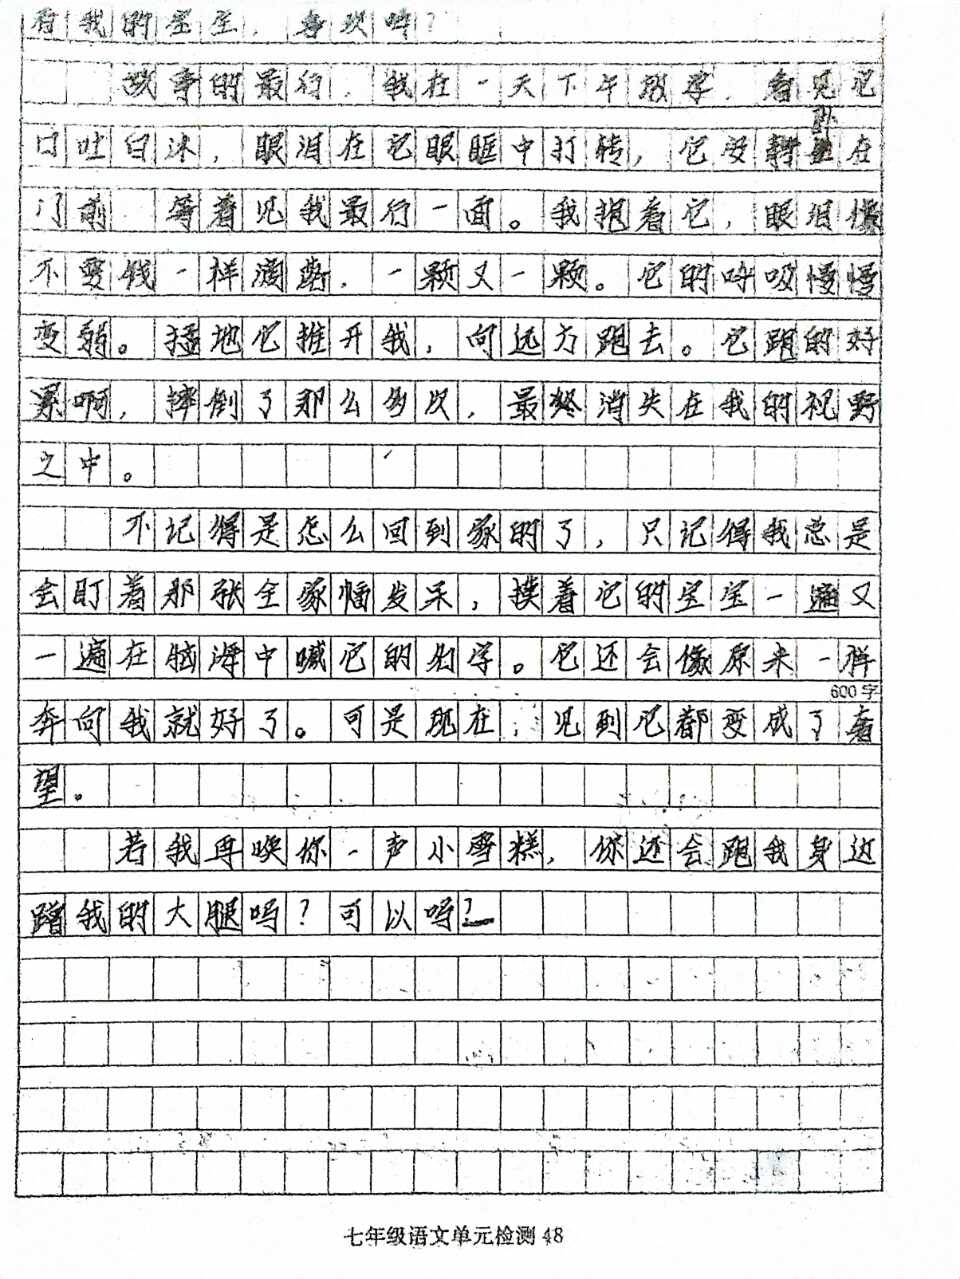 看我的宝宝，喜欢吗？
故事的最行，我在一天下午放学，看见它
口吐白沫，眼泪在它眼眶中打转，它没卧在
门前 等着见我最行一面。我抱着它，眼泪像
不要钱一样滴落，一颗又一颗。它的呼吸慢慢
变弱。猛地它推开我，向远方跑去。它跑的好
累啊，摔倒了那么多次，最终消失在我的视野
之中。
不记得是怎么回到家的了，只记得我总是
会盯着那张全家幅发呆，摸着它的宝宝一遍又
一遍在脑海中喊它的名字。它还会像原来一样
600字
奔向我就好了。可是现在，见到它都变成了奢
望。
若我再唤你一声小雪糕，你还会跑我身边
蹭我的大腿吗？可以吗？
七年级语文单元检测 48